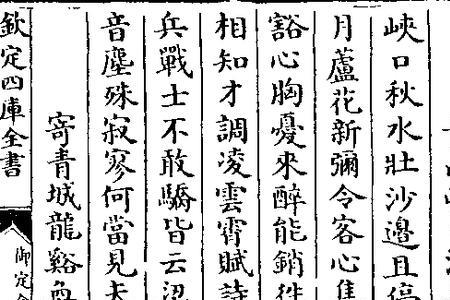 峽口秋水壯沙邉且停
月蘆花新彌令客心
豁心胸憂來醉能銷
相知才調凌雲霄賦詩
兵戰士不敢驕皆云
音塵殊寂寥何當見夫
寄青城龍谿奐
欽定四庫全書
御定全